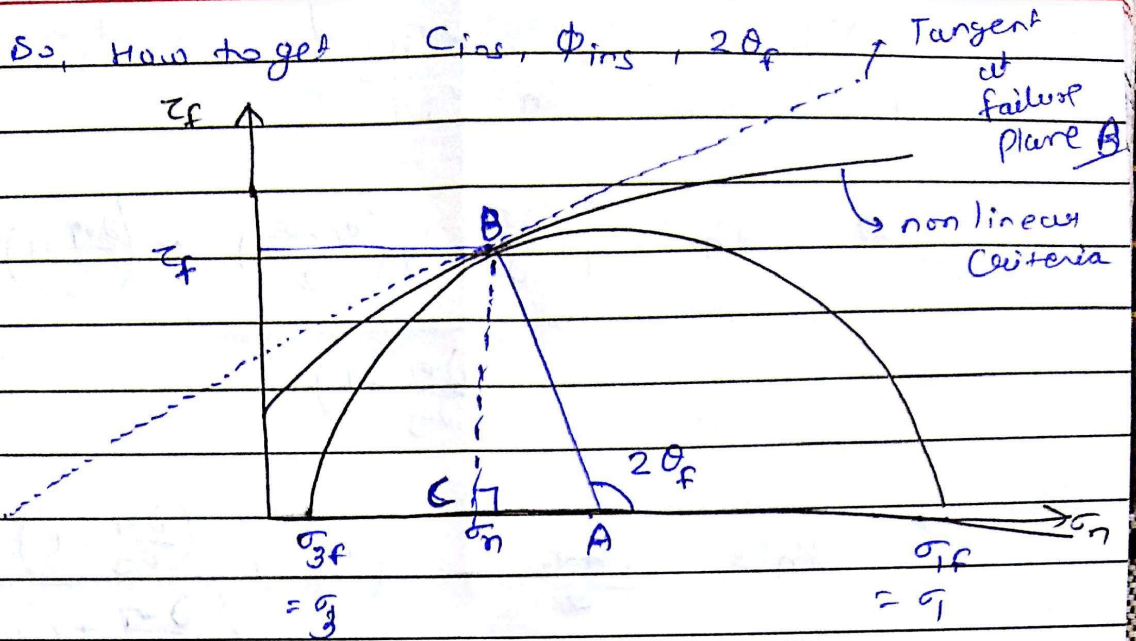 So, How to get Cins, Φins, 2θf
Tangent
at
failure
plane B
τf
B
non linear
Criteria
τf
2θf
C
σn
A
σn
σ3f
= σ3
σ1f
= σ1